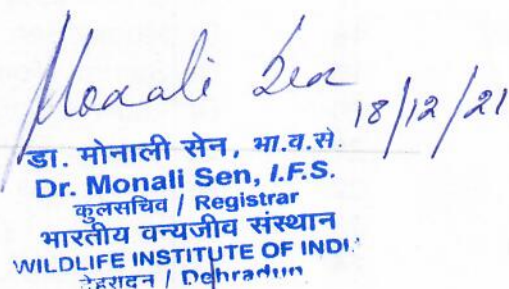 Monali Sen 18/12/21
डा. मोनाली सेन, भा.व.से.
Dr. Monali Sen, I.F.S.
कुलसचिव / Registrar
भारतीय वन्यजीव संस्थान
WILDLIFE INSTITUTE OF INDI
देहरादून / Dehradun